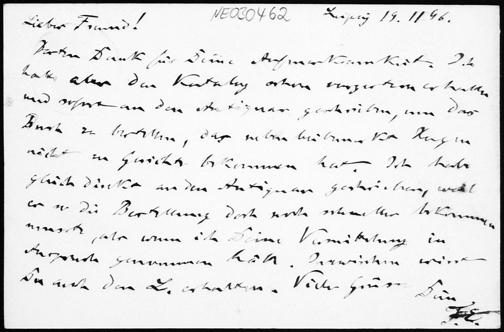 Lieber Freund! NE030462 Leipzig 19. 11 96.
Besten Dank für Deine Aufmerksamkeit. Ich
hatte aber den Katalog schon vorgestern erhalten
und sofort an den Antiquar geschrieben, um das
Buch zu bestellen, das
nicht zu Gesicht bekommen hat. Ich habe
gleich direkt an den Antiquar geschrieben, weil
er so die Bestellung doch noch schneller bekommen
musste, als wenn ich Deine Vermittelung in
Anspruch genommen hätte. Inzwischen wirst
Du auch den L. erhalten. Viele Grüsse Dein